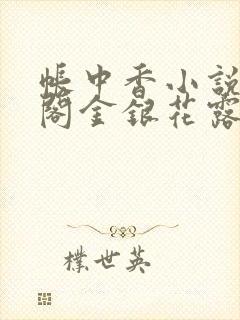 帳中香小説
閣金銀花露
樸世英